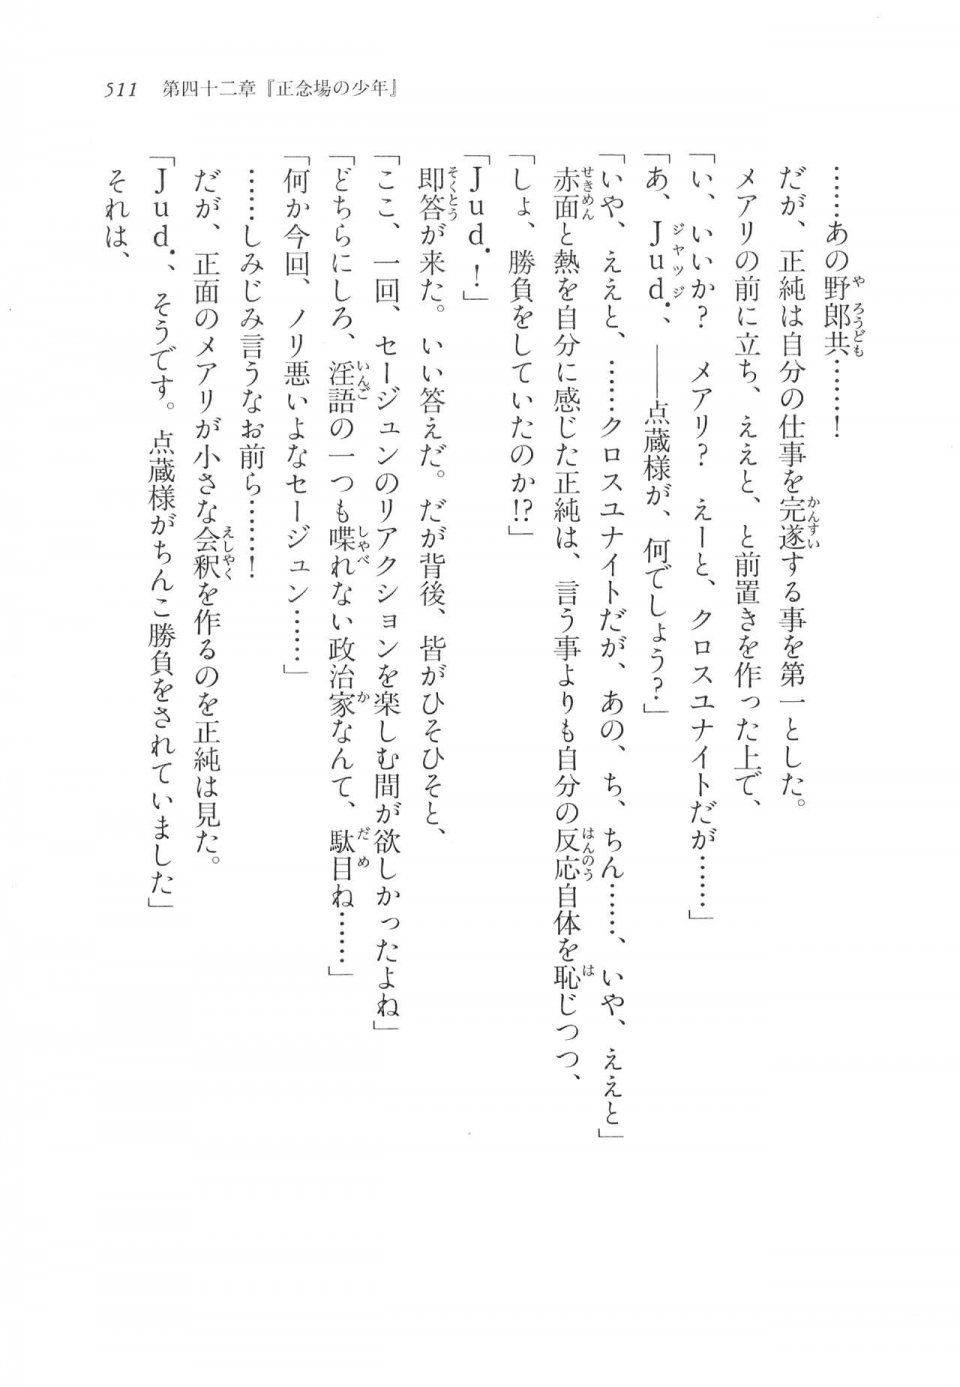 511　第四十二章『正念場の少年』
……あの野郎共……！
だが、正純は自分の仕事を完遂する事を第一とした。
メアリの前に立ち、ええと、と前置きを作った上で、
「い、いいか？　メアリ？　えーと、クロスユナイトだが……」
「あ、Jud．、――点蔵様が、何でしょう？」
「いや、ええと、……クロスユナイトだが、あの、ち、ちん……、いや、ええと」
赤面と熱を自分に感じた正純は、言う事よりも自分の反応自体を恥じつつ、
「しょ、勝負をしていたのか!?」
「Jud．！」
即答が来た。いい答えだ。だが背後、皆がひそひそと、
「ここ、一回、セージュンのリアクションを楽しむ間が欲しかったよね」
「どちらにしろ、淫語の一つも喋れない政治家なんて、駄目ね……」
「何か今回、ノリ悪いよなセージュン……」
……しみじみ言うなお前ら……！
だが、正面のメアリが小さな会釈を作るのを正純は見た。
「Jud．、そうです。点蔵様がちんこ勝負をされていました」
それは、